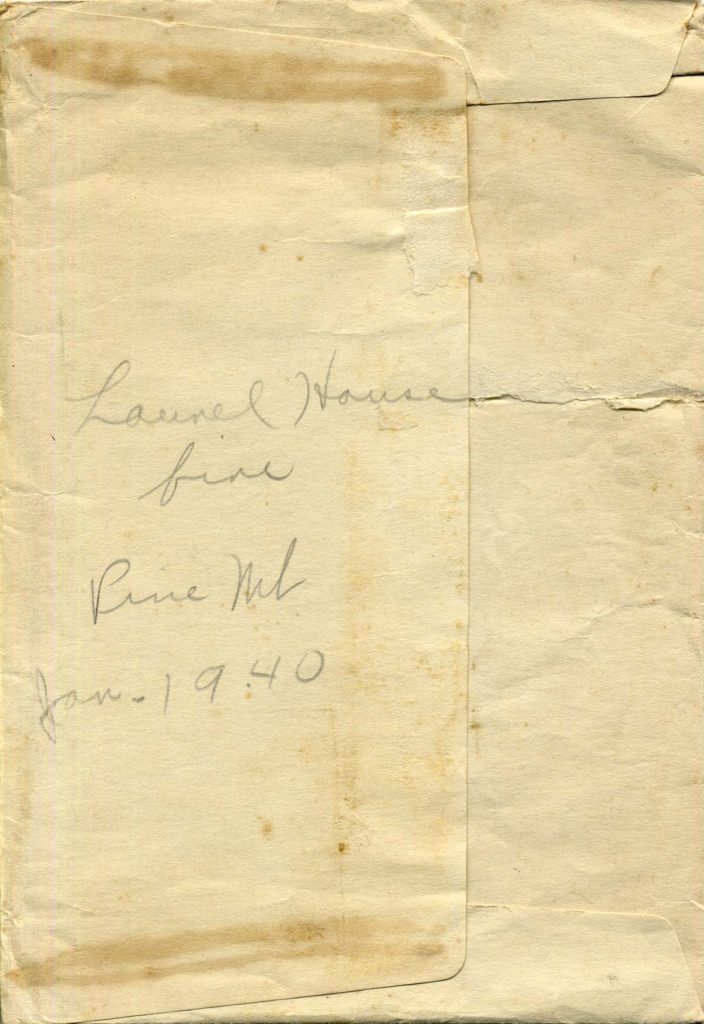 Laurel House
fire
Pine Mt
Jan. 1940